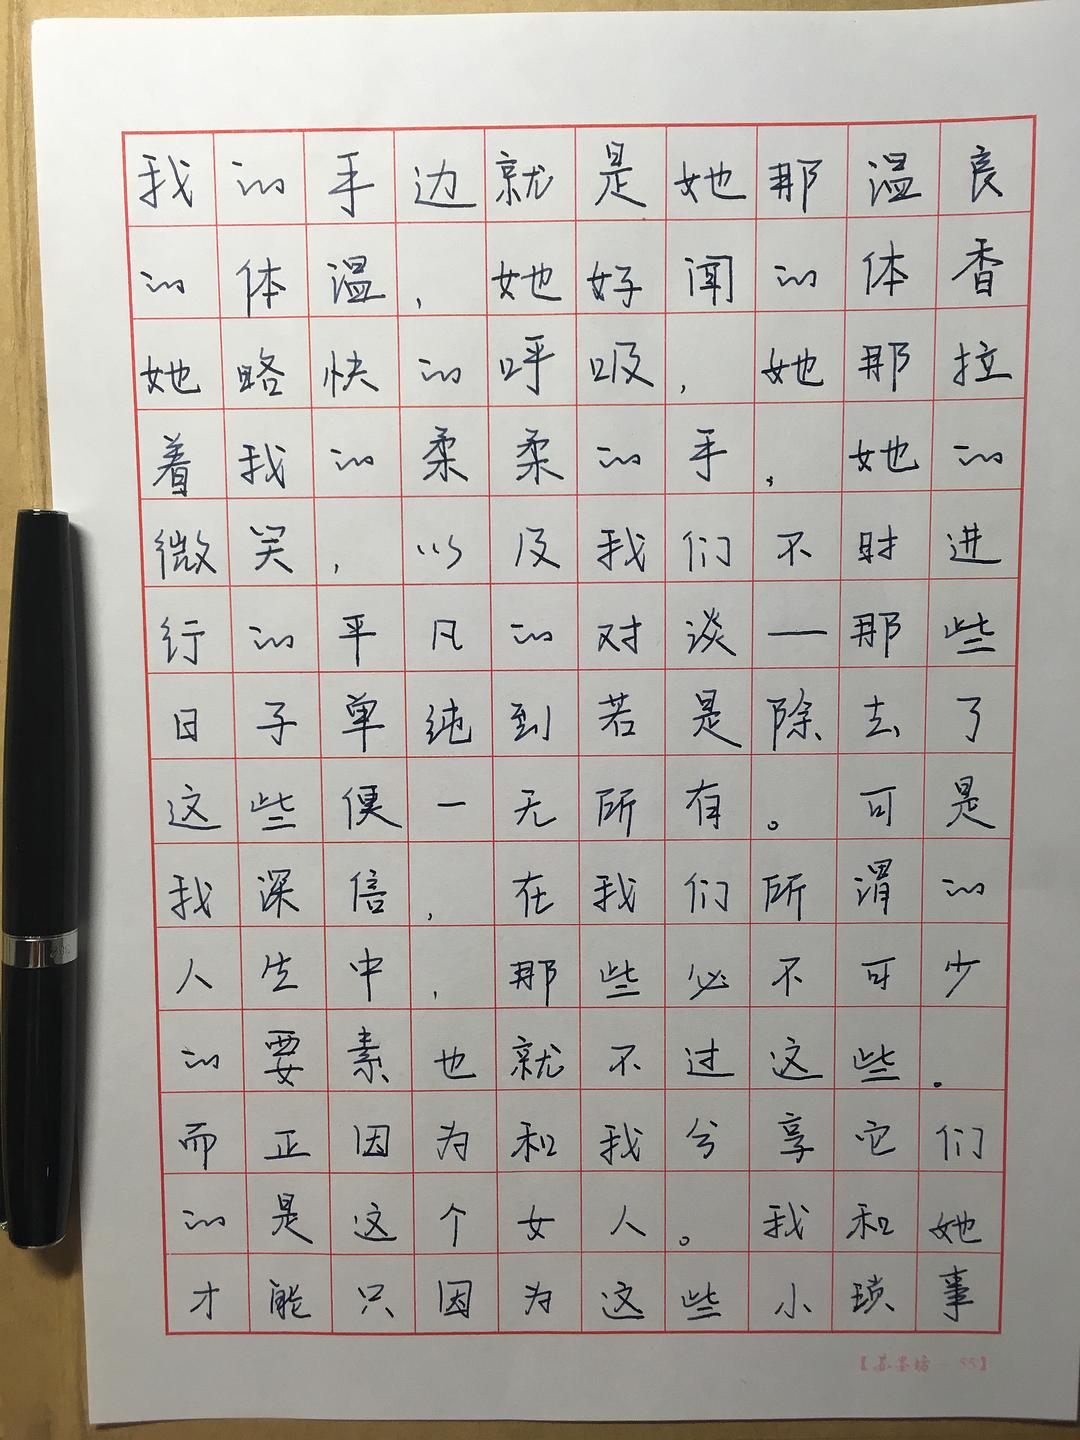 我的手边就是她那温良
的体温，她好闻的体香
她略快的呼吸，她那拉
着我的柔柔的手，她的
微笑，以及我们不时进
行的平凡的对谈—那些
日子单纯到若是除去了
这些便一无所有。可是
我深信，在我们所谓的
人生中，那些必不可少
的要素也就不过这些.
而正因为和我分享它们
的是这个女人。我和她
才能只因为这些小琐事
【苏墨坊—55】